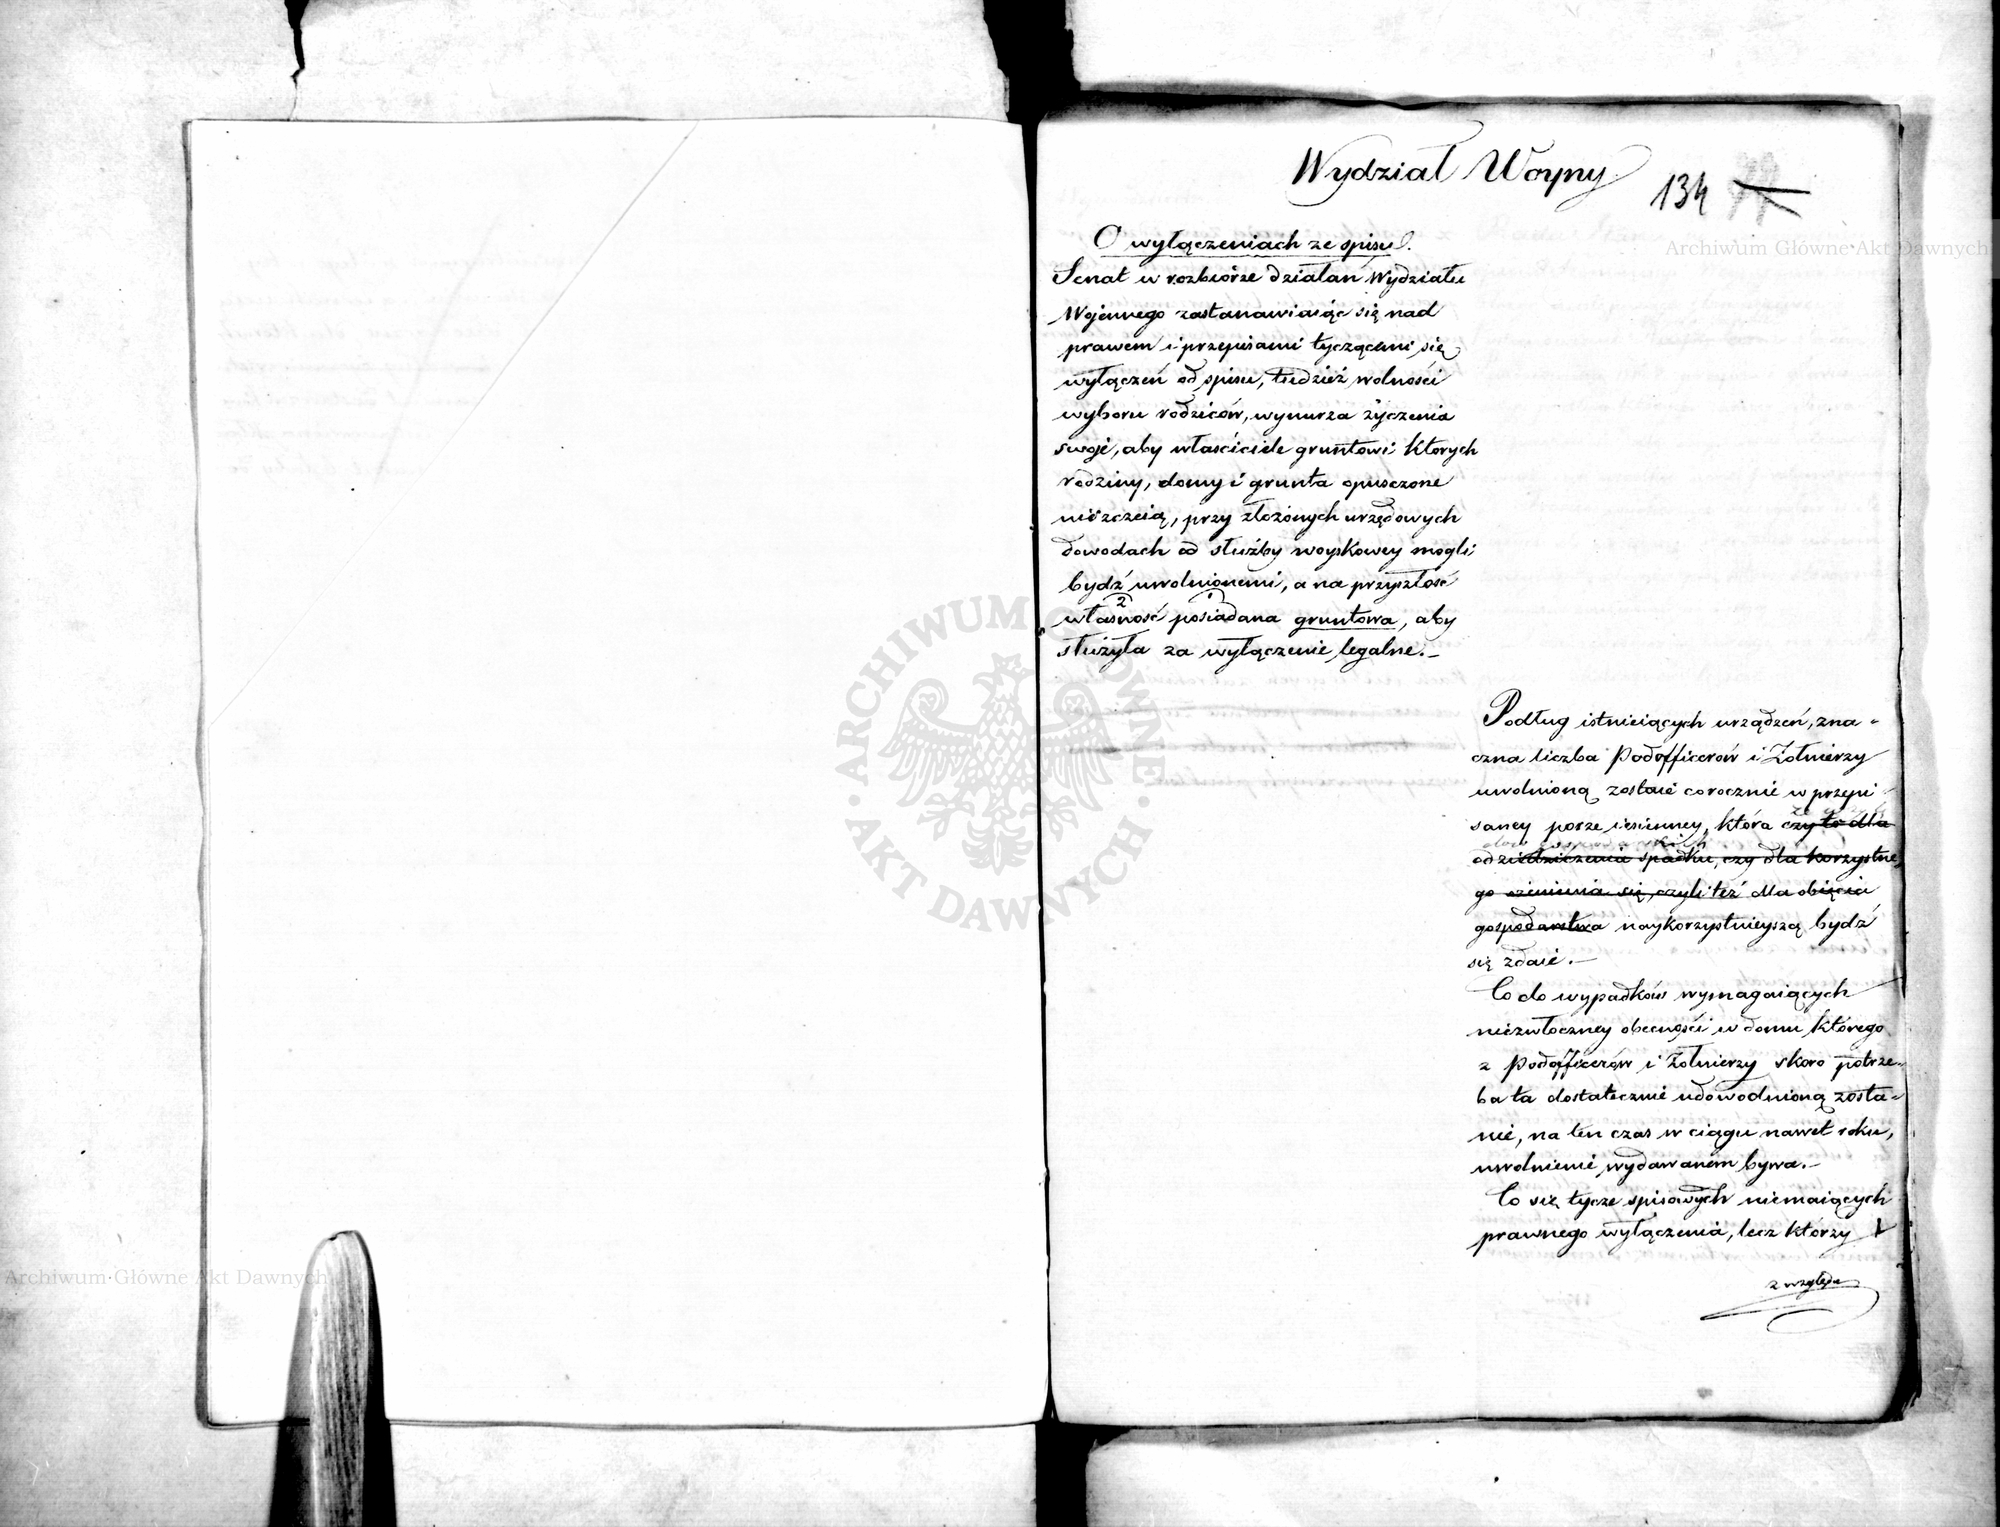 Wydział Woyny
134
O wyłączeniach ze spisu.
Senat w rozbiorze działań Wydziału
Wojennego zastanawiaiąc się nad
prawem i przepisami tyczącemi się
wyłączeń od spisu, tudzież wolności
wyboru rodziców, wynurza życzenia
swoje, aby właściciele gruntowi których
rodziny, domy i grunta opuszczone
niszczeią, przy złożonych urzędowych
dowodach od służby woyskowey mogli
bydź uwolnionemi, a na przyszłość
2 1
własność posiadana gruntowa, aby
służyła za wyłączenie legalne.—
Podług istnieiących urządzeń, zna-
czna liczba Podofficerów i Żołnierzy
uwolnioną zostaie corocznie w przepi-
saney porze iesienney, która czy to dla
odziedziczenia spadku, czy dla korzystne-
go ożenienia się, czyli też dla obięcia
gospodarstwa naykorzystnieyszą bydź
się zdaie.—
Co do wypadków wymagaiących
niezwłoczney obecności w domu którego
z Podofficerów i Żołnierzy skoro potrze-
ba ta dostatecznie udowodnioną zosta-
nie, na ten czas w ciągu nawet roku,
uwolnienie wydawanem bywa.—
Co się tycze spisowych niemaiących
prawnego wyłączenia, lecz którzy
z względu
Archiwum Główne Akt Dawnych
Archiwum Główne Akt Dawnych
ARCHIWUM GŁÓWNE
AKT DAWNYCH